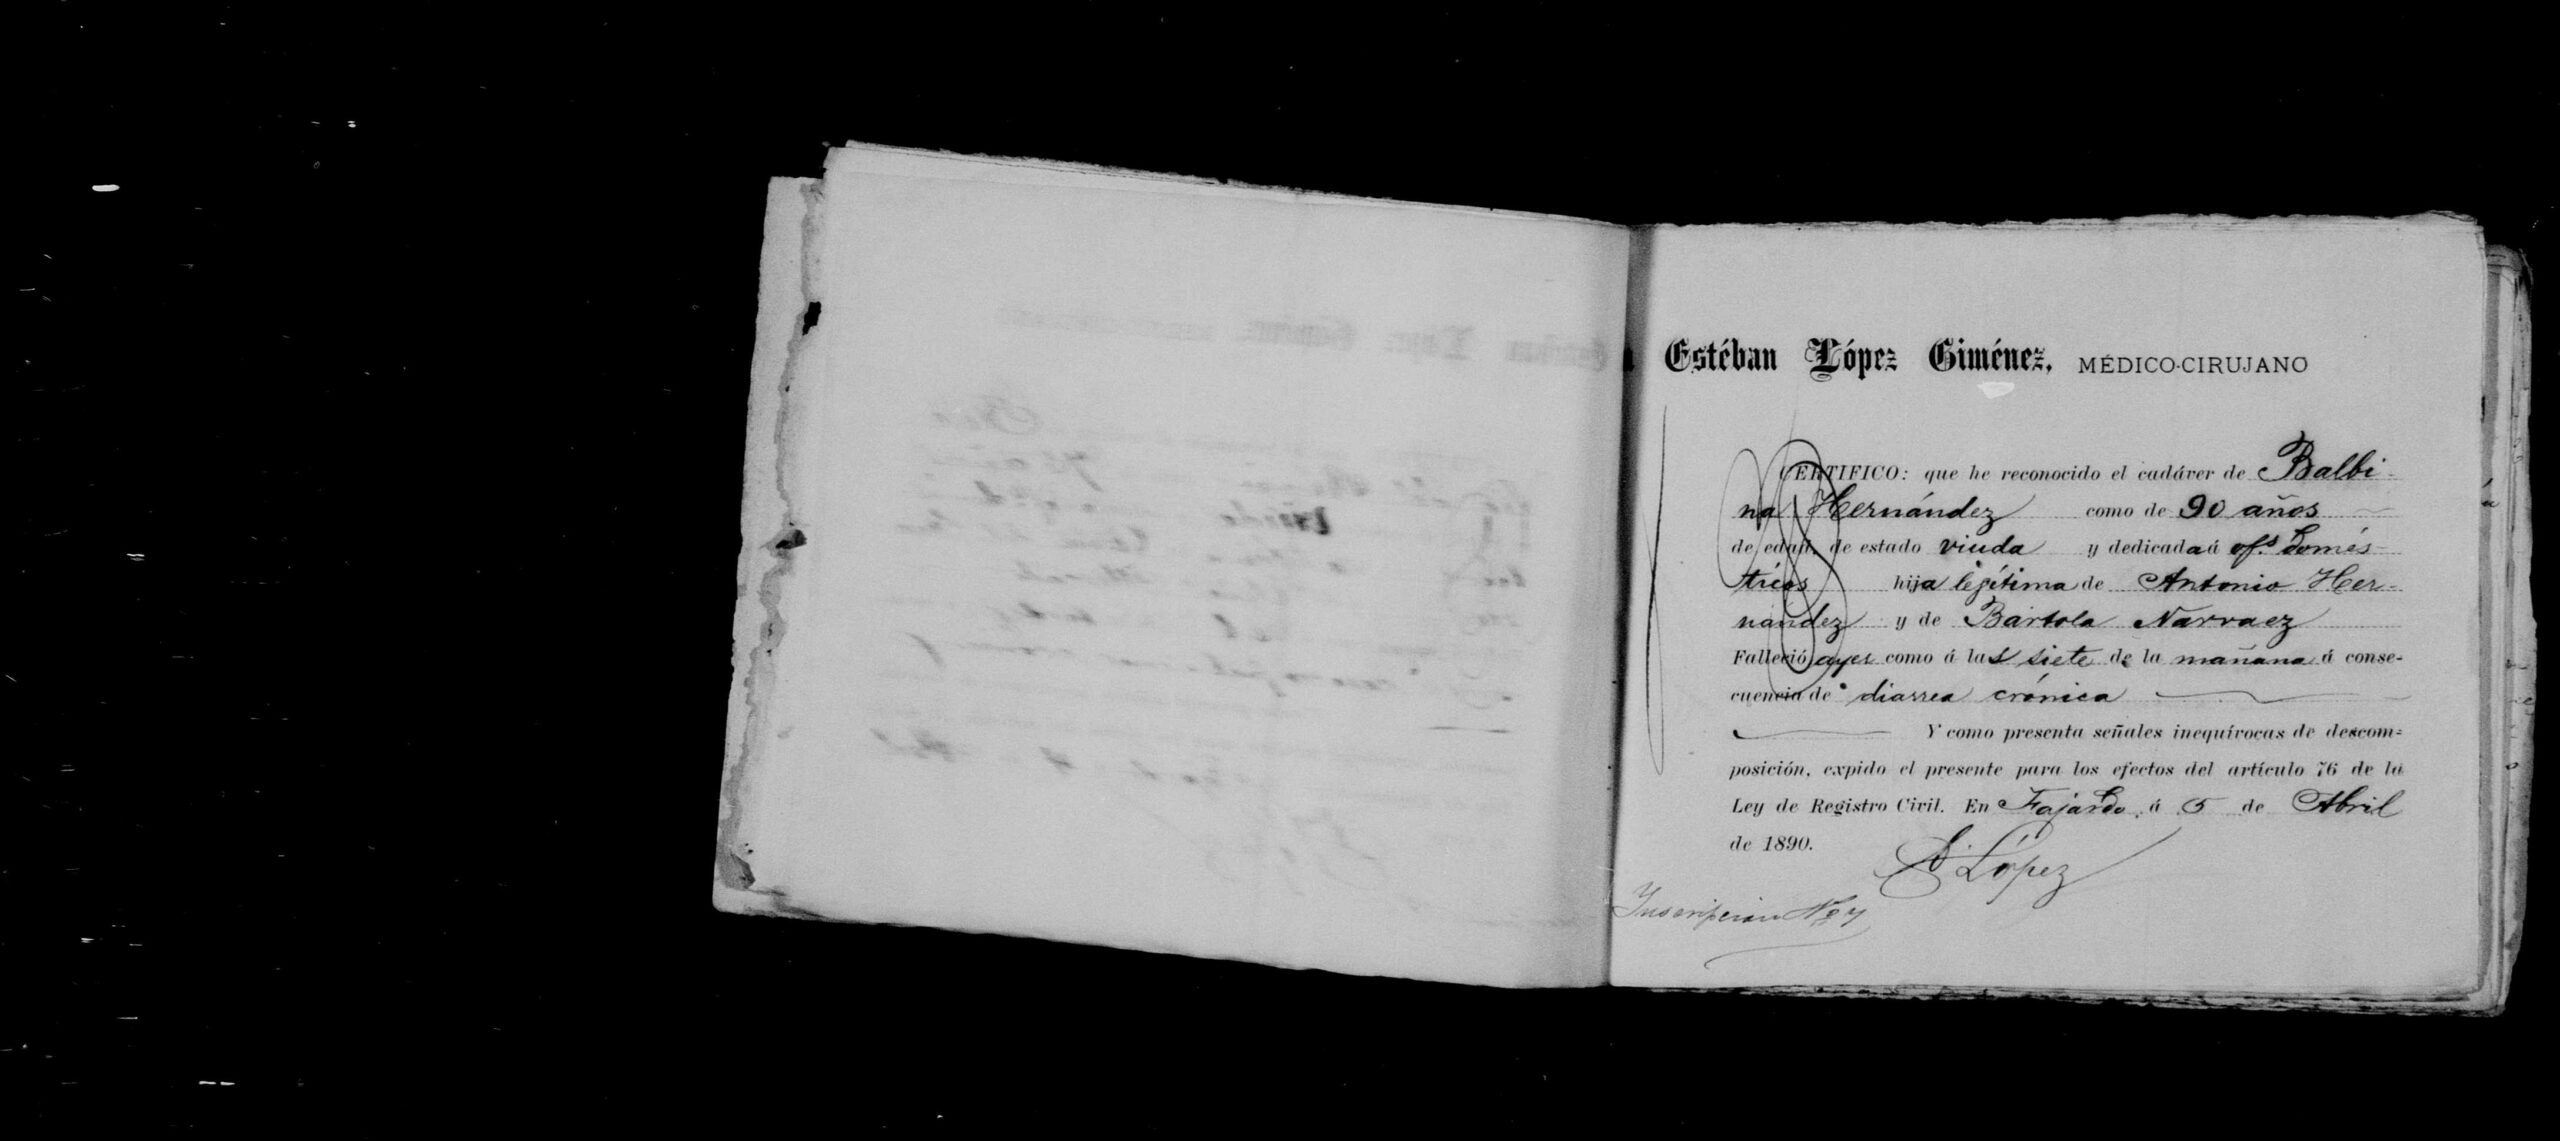 Estéban López Giménez, MÉDICO-CIRUJANO
CERTIFICO: que he reconocido el cadáver de Balbi-
na Hernández como de 90 años
de edad, de estado viuda y dedicada á ofs. Domés-
ticos hija legítima de Antonio Her-
nández y de Bártola Narvaez
Falleció ayer como á las siete de la mañana á conse-
cuencia de diarrea crónica
Y como presenta señales inequívocas de descom-
posición, expido el presente para los efectos del artículo 76 de la
Ley de Registro Civil. En Fajardo, á 5 de Abril
de 1890.
E. López
Inscripcion Nº 7